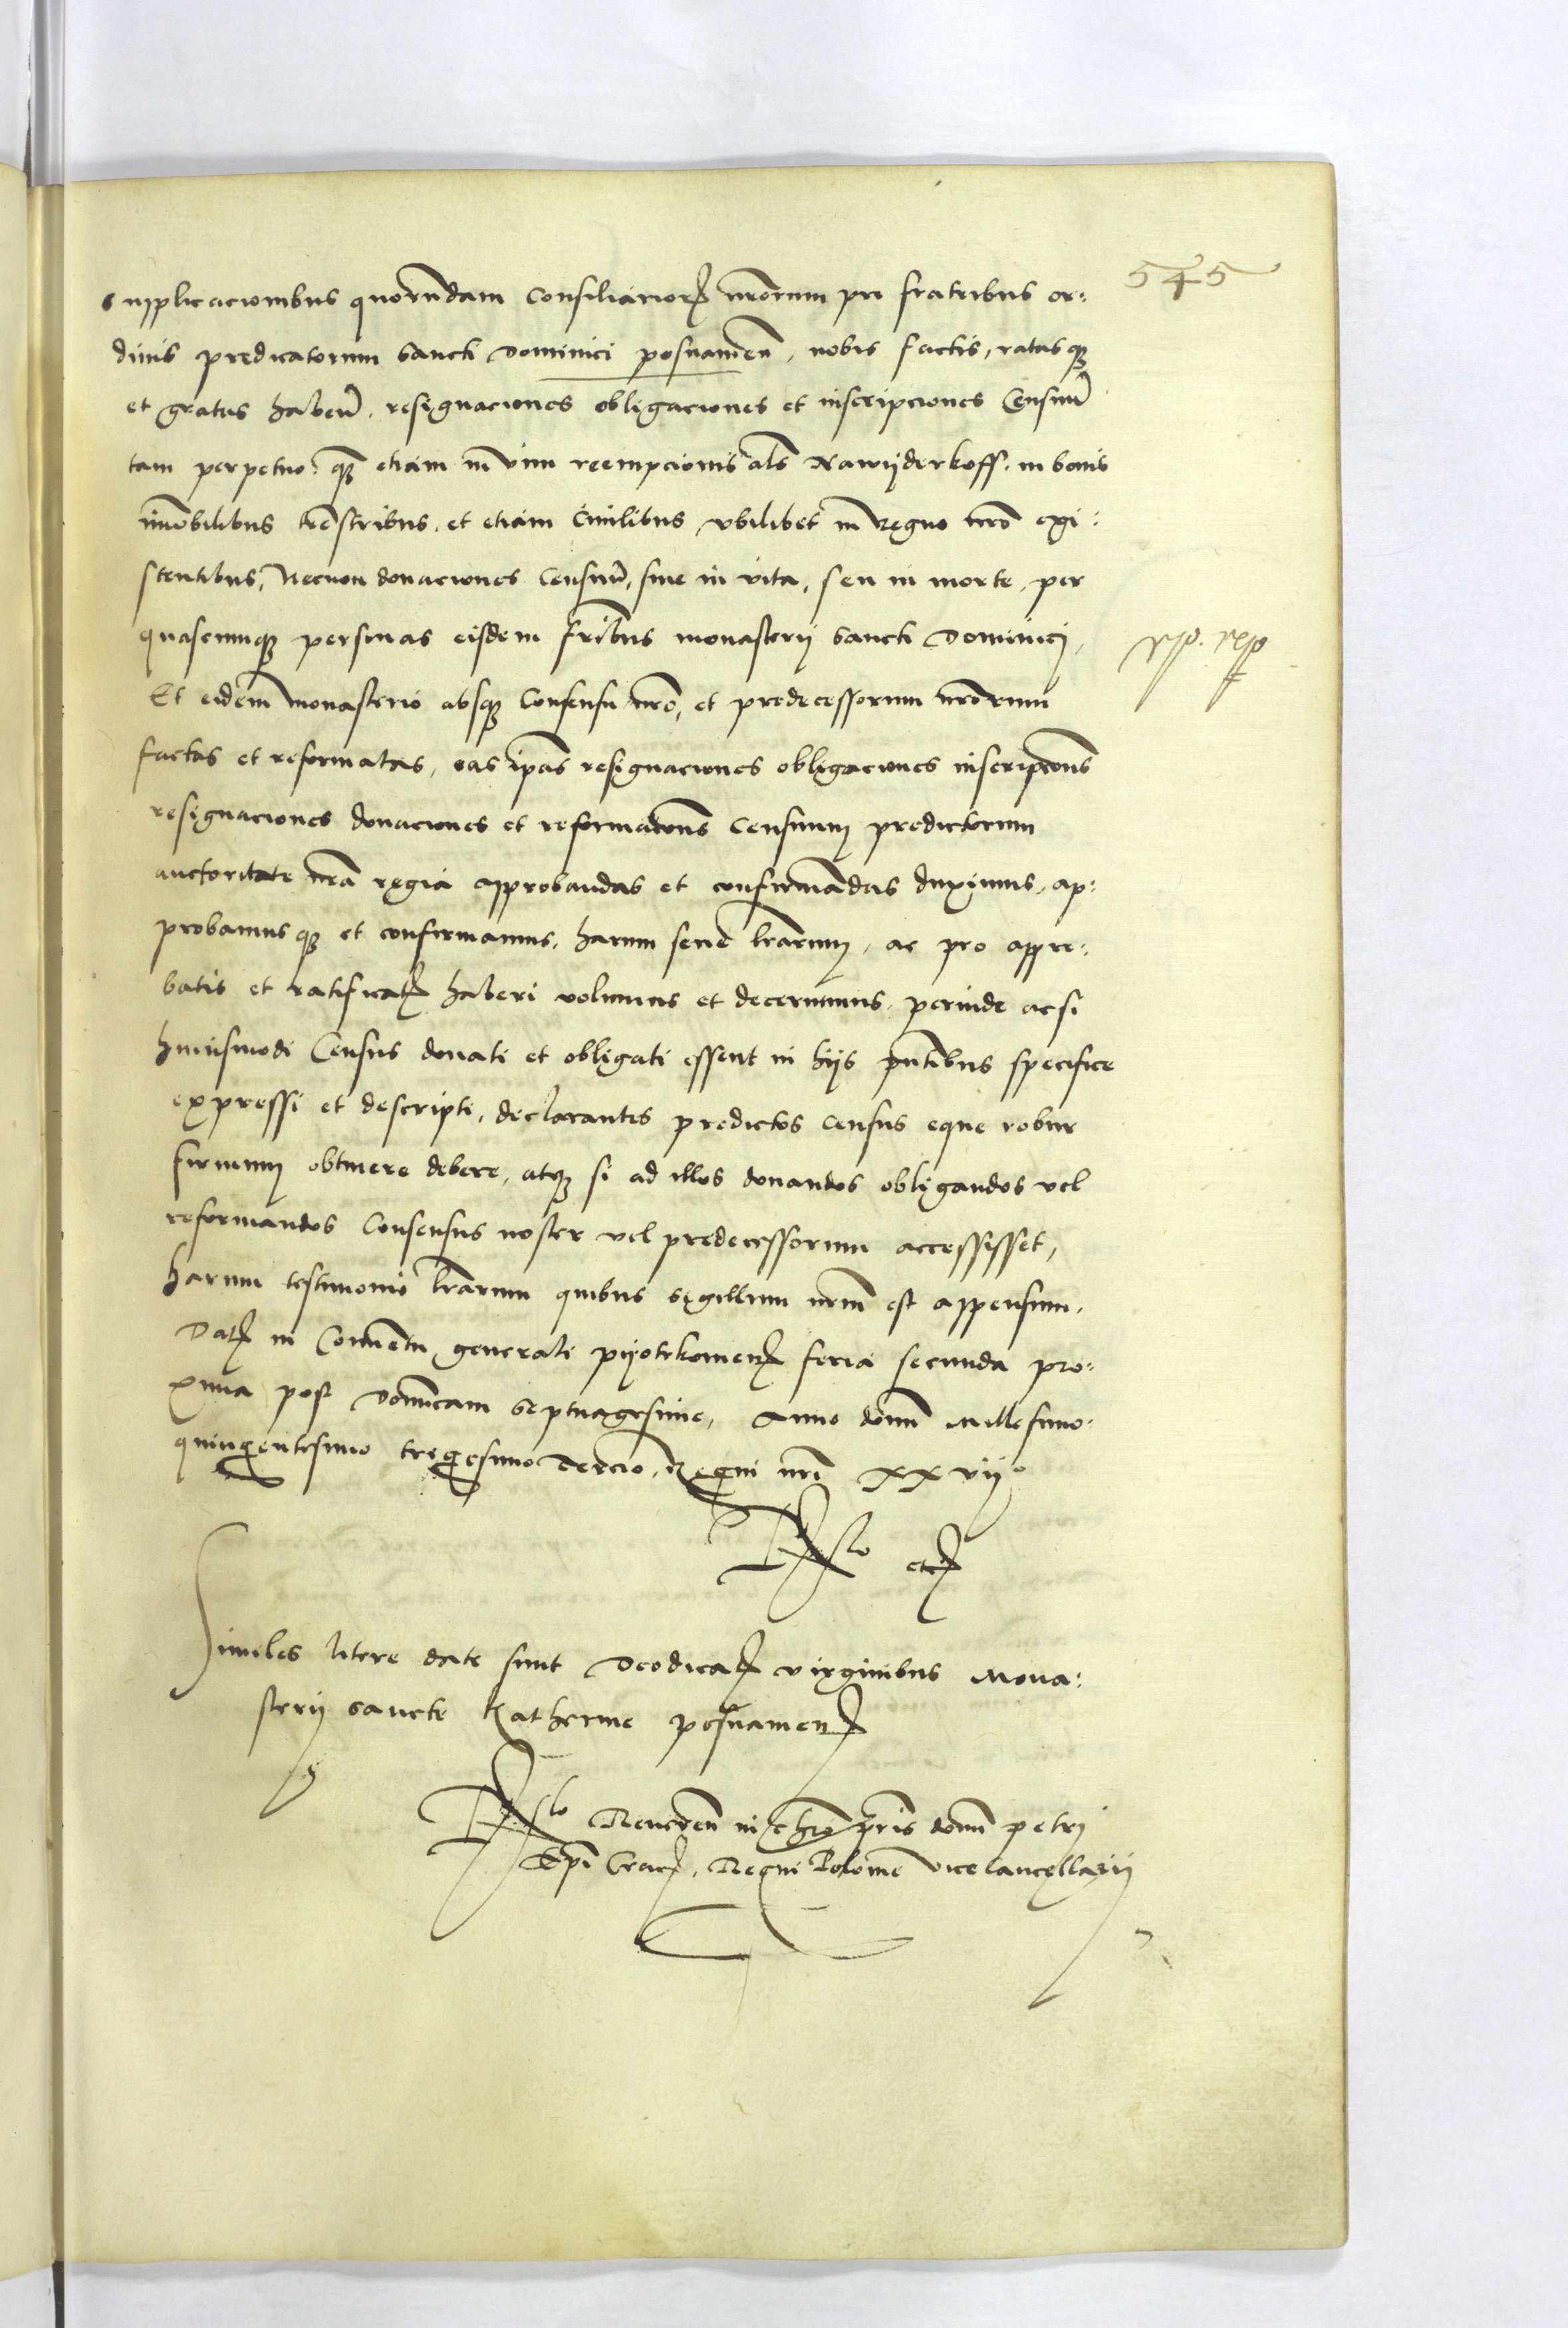 545
supplicacionibus quorundam Consiliarior nrorum pro fratribus or:
dinis predicatorum Sancti Dominici posnamen, nobis factis, ratasq3
et gratas haben, resignaciones obligaciones et inscripciones Censuu
tam perpetuo, q3 etiam in vim reempcionis als Nawyderkoff, in bonis
imobilibus trestribus, et etiam Civilibus, vbilibet in Regno nro exi:
stentibus, Necnon donaciones Censuu, siue in vita, seu in morte, per
quascunq3 personas eisdem fribus monastery Sancti Dominici,
Et eidem monasterio absq3 Consensu nro, et predecessorum nrorum
factas et reformatas, eas ipas resignaciones obligaciones inscripcons
resignaciones donaciones et reformacons Censuum predictorum
auctoritate nra regia approbandas et confirmadas duximus, ap:
probamusq3 et confirmamus, harum serie lrarum, ac pro appro:
batis et ratificat haberi volumus et decernimus, perinde acsi
huiusmodi Census donati et obligati essent in hijs pntibus specifice
expressi et descripti, declarantes predictos Census eque robur
firmum obtinere debere, atq3 si ad illos donandos obligandos vel
reformandos Consensus noster vel predecessorum accessisset,
harum testimonio lrarum quibus Sigillum nrm est appensum.
Dat in Conuetu generali pyotrkomen feria secunda pro:
xima post Domicam Septuagesime, Anno domi Millesimo
quingentesimo tregesimo tercio, Regni nri xxvij
Rlo etc
Similes litere date sunt Deodicat virginibus Mona:
stery sancte Katherine posnamen
Rlo Reueren in chro pris domi petri
Epi Crac, Regni Polonie vicecancellary